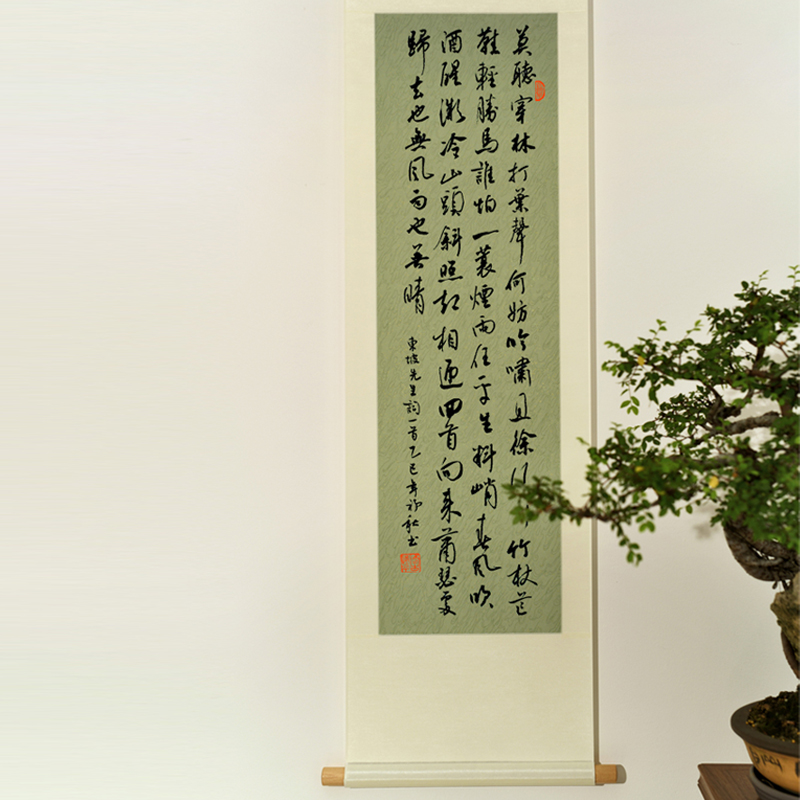 莫聽穿林打葉聲何妨吟嘯且徐行竹杖芒
鞋輕勝馬誰怕一蓑煙雨任平生料峭春風吹
酒醒微冷山頭斜照却相迎回首向來蕭瑟處
歸去也無風雨也無晴
東坡先生詞一首乙巳年初秋書